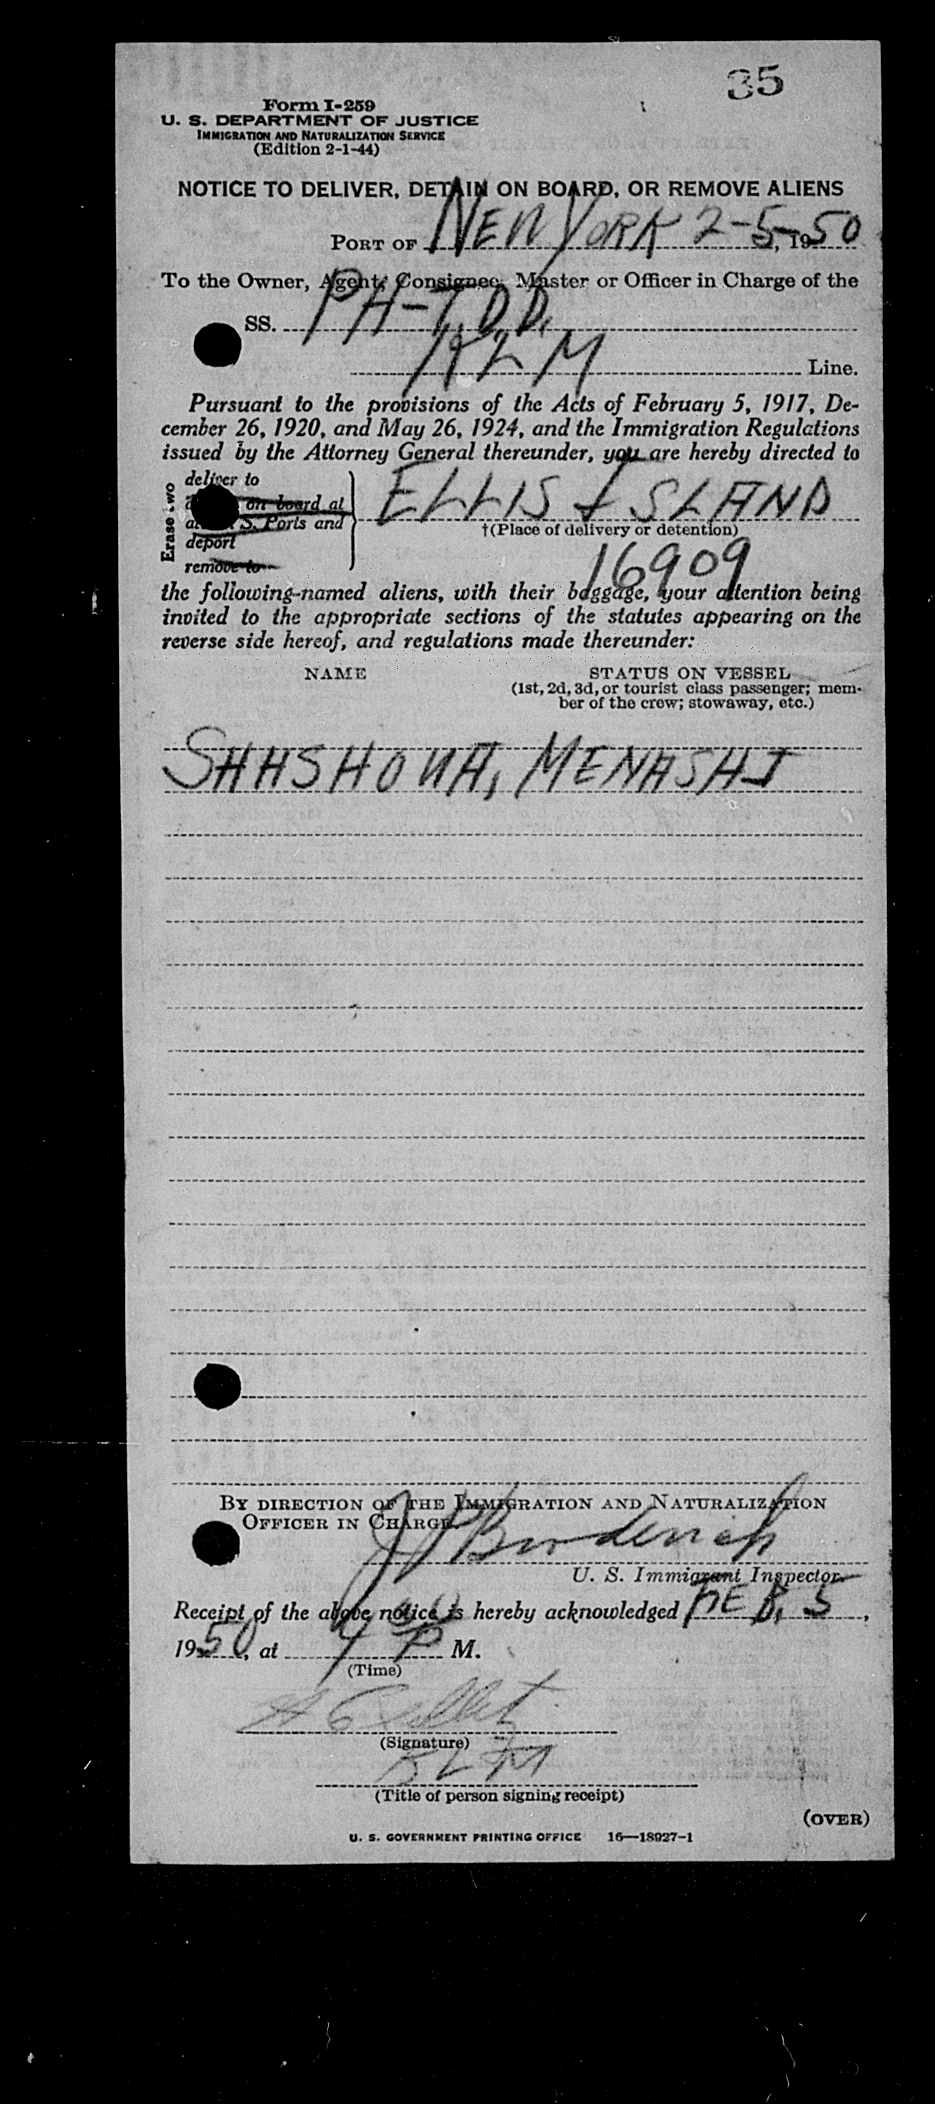 35
Form I-259
U. S. DEPARTMENT OF JUSTICE
IMMIGRATION AND NATURALIZATION SERVICE
(Edition 2-1-44)
NOTICE TO DELIVER, DETAIN ON BOARD, OR REMOVE ALIENS
PORT OF NEW YORK 2-5-, 1950
To the Owner, Agent, Consignee, Master or Officer in Charge of the
SS. PH-T.D.D.
KLM Line.
Pursuant to the provisions of the Acts of February 5, 1917, De-
cember 26, 1920, and May 26, 1924, and the Immigration Regulations
issued by the Attorney General thereunder, you are hereby directed to
Erase two
deliver to
on board at
S. Ports and
deport
remove to
ELLIS ISLAND
†(Place of delivery or detention)
16909
the following-named aliens, with their baggage, your attention being
invited to the appropriate sections of the statutes appearing on the
reverse side hereof, and regulations made thereunder:
NAME STATUS ON VESSEL
(1st, 2d, 3d, or tourist class passenger; mem-
ber of the crew; stowaway, etc.)
SHASHOUA, MENASHI
BY DIRECTION OF THE IMMIGRATION AND NATURALIZATION
OFFICER IN CHARGE.
U. S. Immigrant Inspector.
Receipt of the above notice is hereby acknowledged FEB. 5,
1950, at 4 00 P M.
(Time)
(Signature)
KLM
(Title of person signing receipt)
(OVER)
U. S. GOVERNMENT PRINTING OFFICE 16—18927-1